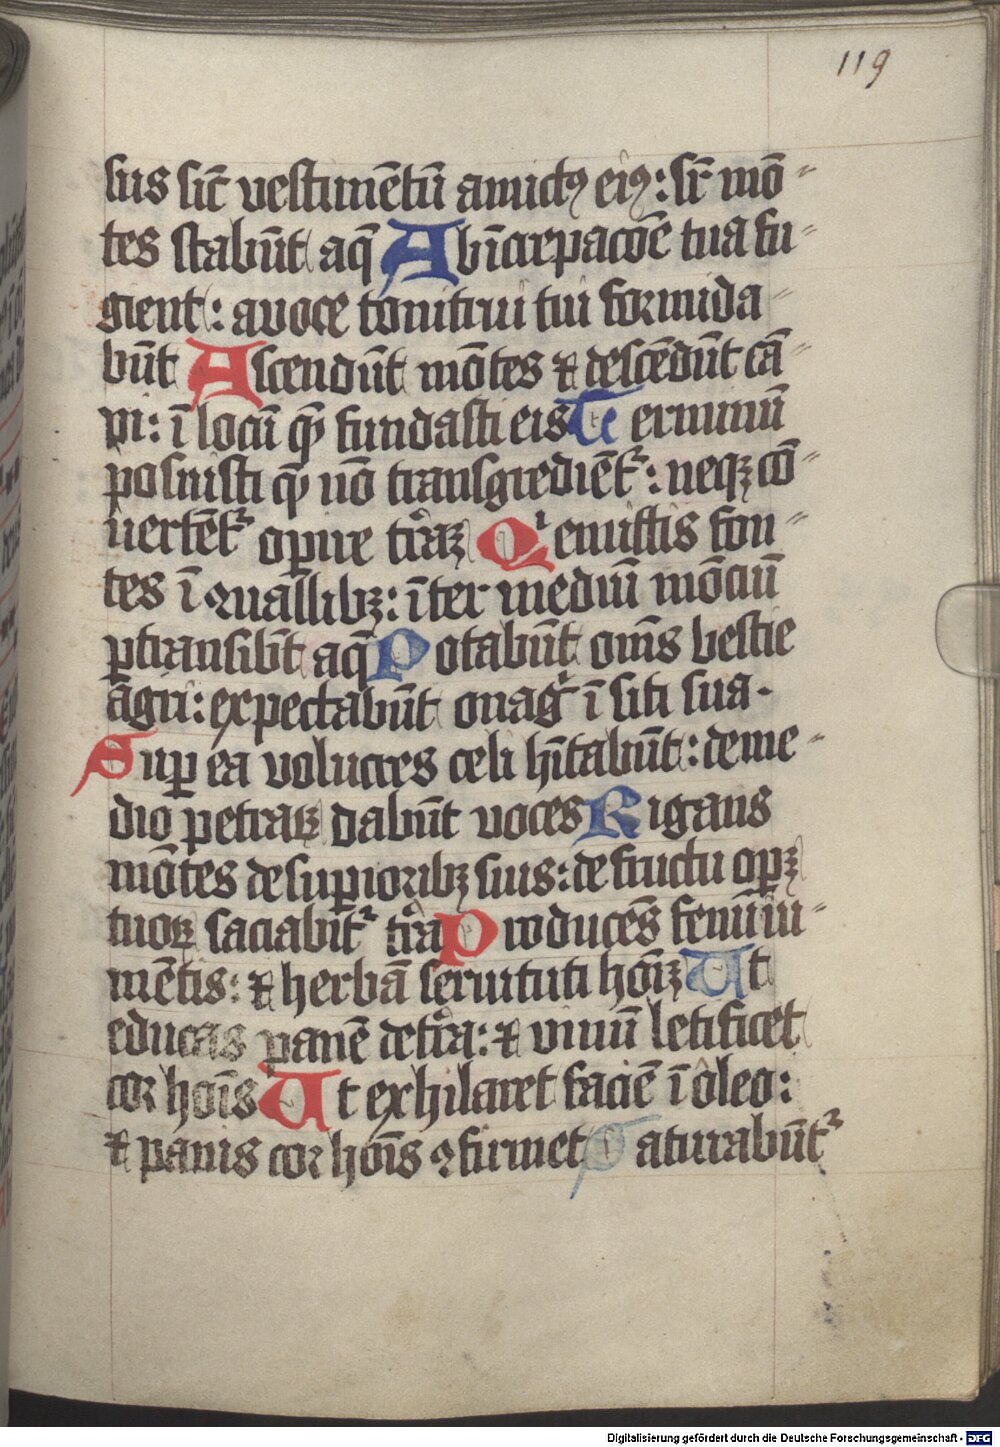 119
sus sic̄ vestimētū amictꝰ eiꝰ: sr̄ mō-
tes stabūt aq̄ Abīcrepacōe tua fu-
gient: avoce tonitrui tui formida-
būt Ascendūt mōtes ⁊ descēdūt cā-
pi: ī locū qͫ fundasti eis Terminū
posuisti qͫ nō transgrediēt᷑: neqꝫ cō-
vertēt᷑ opire tr̄aꝫ Qͥ emittis fon-
tes ī ꝯuallibꝫ: īter mediū mōciū
ꝑtransibt̄ aq̄ Potabūt om̄s bestie
agri: expectabūt onagͥ ī siti sua.
Suꝑ ea volucres celi hītabūt: deme-
dio petraꝝ dabūt voces Rigans
mōtes desuꝑioribꝫ suis: de fructu oꝑꝫ
tuoꝝ saciabit᷑ tr̄a Producēs fenū iu-
mētis: ⁊ herbā seruituti hoīꝫ Ut
educas panē detr̄a: ⁊ vinū letificet
cor hoīs Ut exhilaret faciē ī oleo:
⁊ panis cor hoīs ꝯfirmet Saturabūt᷑
Digitalisierung gefördert durch die Deutsche Forschungsgemeinschaft - DFG